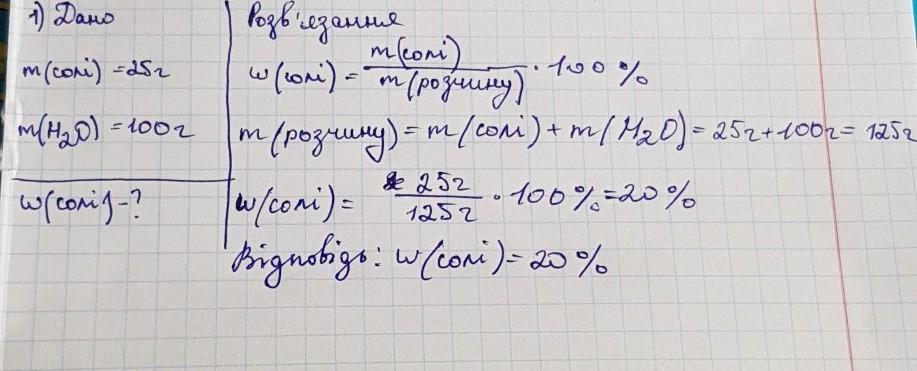 1) Дано
m(солі) = 25г
m(H₂O) = 100г
w(солі) - ?
Розв'язання
w(солі) = m(солі) / m(розчину) · 100%
m(розчину) = m(солі) + m(H₂O) = 25г + 100г = 125г
w(солі) = 25г / 125г · 100% = 20%
Відповідь: w(солі) = 20%